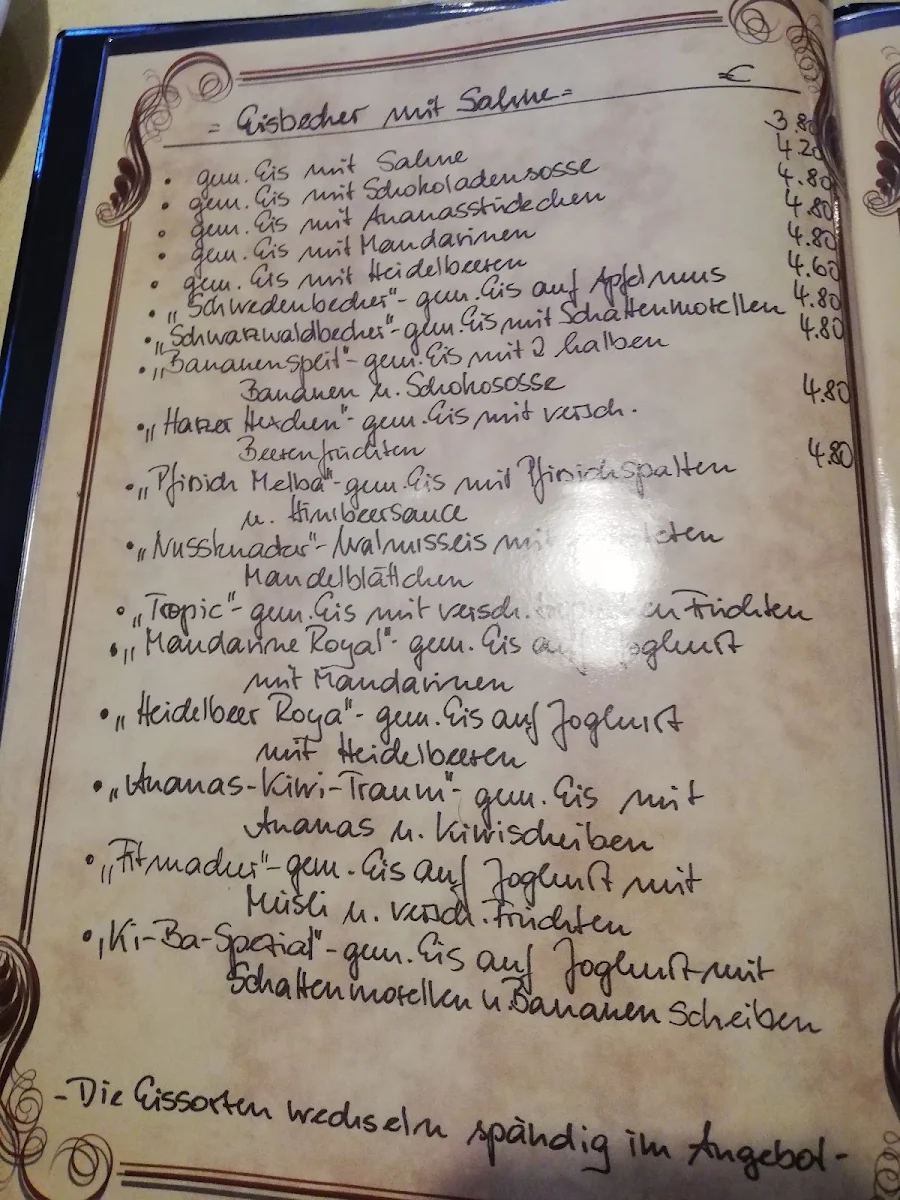 = Eisbecher mit Sahne = €
• gem. Eis mit Sahne 3.80
• gem. Eis mit Schokoladensosse 4.20
• gem. Eis mit Ananasstückchen 4.80
• gem. Eis mit Mandarinen 4.80
• gem. Eis mit Heidelbeeren 4.80
• „Schwedenbecher"- gem. Eis auf Apfelmus 4.60
• „Schwarzwaldbecher"- gem. Eis mit Schattenmorellen 4.80
• „Bananensplit"- gem. Eis mit 2 halben 4.80
Bananen u. Schokososse
• „Harzer Hexchen"- gem. Eis mit versch. 4.80
Beerenfrüchten
• „Pfirsich Melba"- gem. Eis mit Pfirsichspalten 4.80
u. Himbeersauce
• „Nussknacker"- Walnusseis mit
Mandelblättchen
• „Tropic"- gem. Eis mit versch. Früchten
• „Mandarine Royal"- gem. Eis auf Joghurt
mit Mandarinen
• „Heidelbeer Roya"- gem. Eis auf Joghurt
mit Heidelbeeren
• „Ananas-Kiwi-Traum"- gem. Eis mit
Ananas u. Kiwischeiben
• „Fitmacher"- gem. Eis auf Joghurt mit
Müsli u. versch. Früchten
• „Ki-Ba-Spezial"- gem. Eis auf Joghurt mit
Schattenmorellen u. Bananen Scheiben
- Die Eissorten wechseln spändig im Angebot -